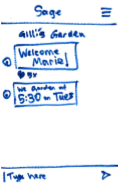 Sage
Gilli's Garden
Welcome
Marie!
9x
We Garden at
5:30 on Tues
Type here